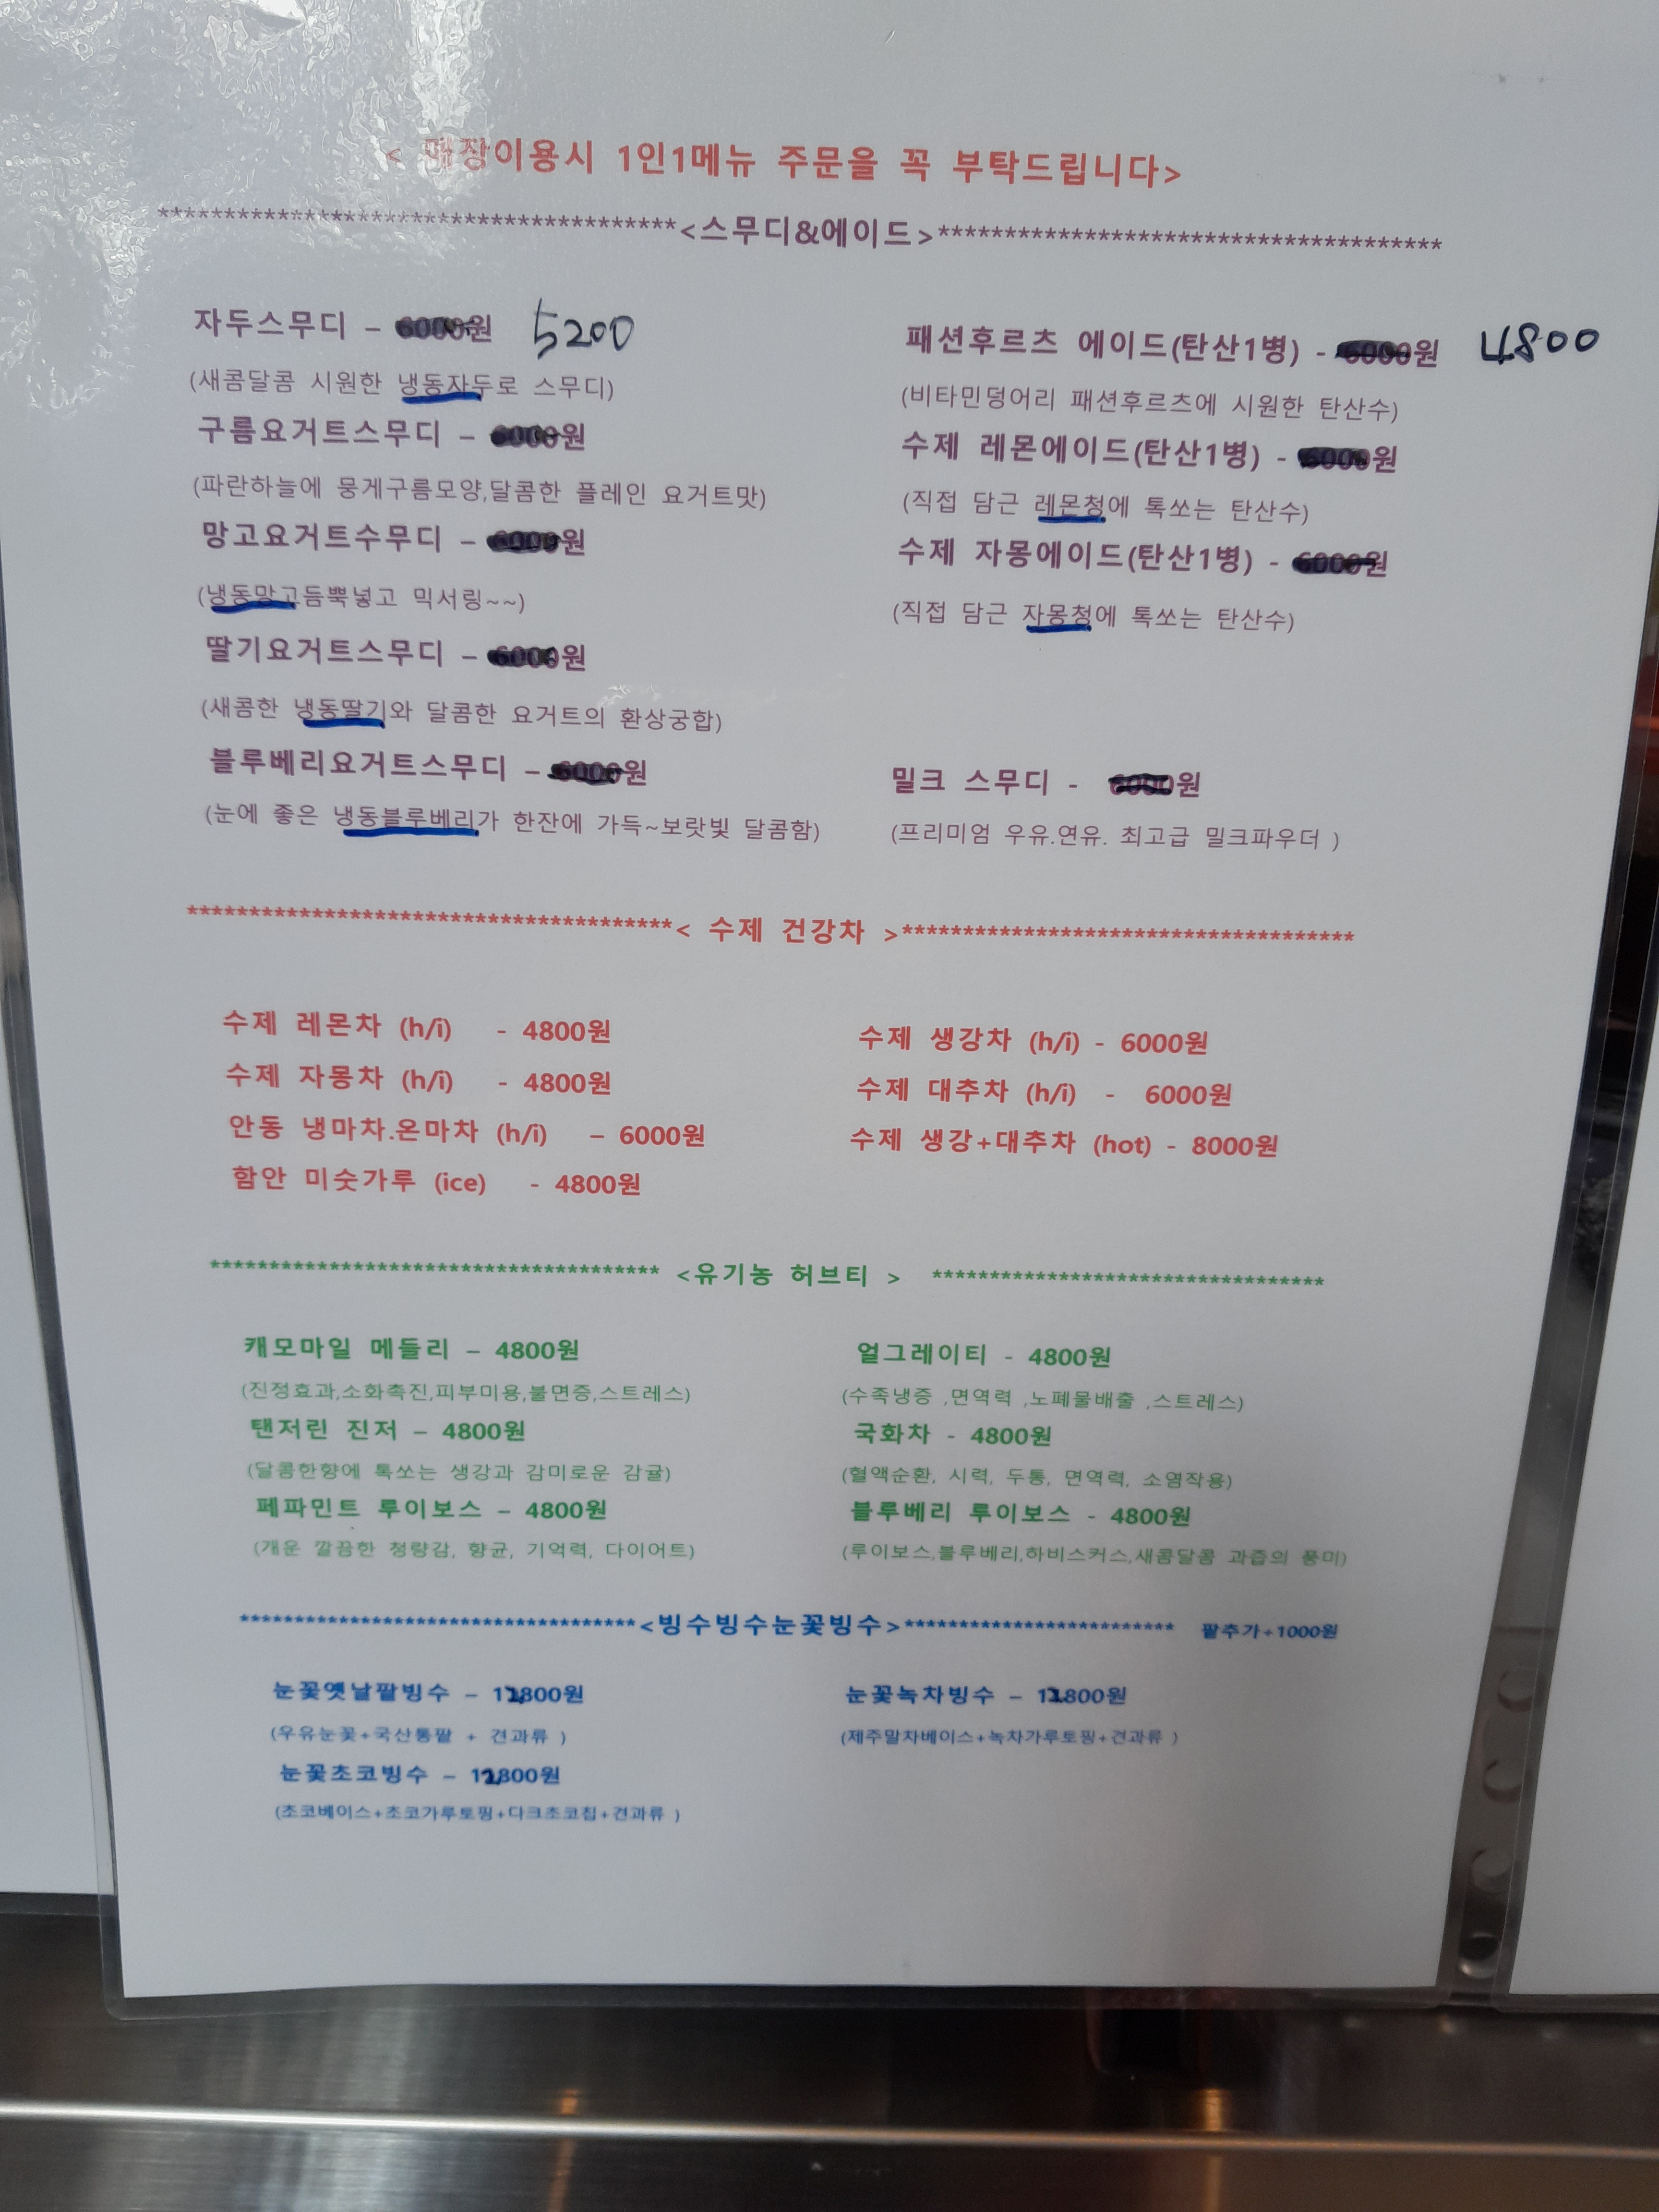 < 매장이용시 1인1메뉴 주문을 꼭 부탁드립니다>
***************************************<스무디&에이드>**************************************
자두스무디 – 6000원 5200
(새콤달콤 시원한 냉동자두로 스무디)
구름요거트스무디 – 6000원
(파란하늘에 뭉게구름모양,달콤한 플레인 요거트맛)
망고요거트수무디 – 6000원
(냉동망고듬뿍넣고 믹서링~~)
딸기요거트스무디 – 6000원
(새콤한 냉동딸기와 달콤한 요거트의 환상궁합)
블루베리요거트스무디 – 6000원
(눈에 좋은 냉동블루베리가 한잔에 가득~보랏빛 달콤함)
패션후르츠 에이드(탄산1병) - 6000원 4800
(비타민덩어리 패션후르츠에 시원한 탄산수)
수제 레몬에이드(탄산1병) - 6000원
(직접 담근 레몬청에 톡쏘는 탄산수)
수제 자몽에이드(탄산1병) - 6000원
(직접 담근 자몽청에 톡쏘는 탄산수)
밀크 스무디 - 6000원
(프리미엄 우유.연유. 최고급 밀크파우더 )
***************************************< 수제 건강차 >*************************************
수제 레몬차 (h/i) - 4800원
수제 자몽차 (h/i) - 4800원
안동 냉마차.온마차 (h/i) – 6000원
함안 미숫가루 (ice) - 4800원
수제 생강차 (h/i) - 6000원
수제 대추차 (h/i) - 6000원
수제 생강+대추차 (hot) - 8000원
************************************** <유기농 허브티 > *********************************
캐모마일 메들리 – 4800원
(진정효과,소화촉진,피부미용,불면증,스트레스)
탠저린 진저 – 4800원
(달콤한향에 톡쏘는 생강과 감미로운 감귤)
페파민트 루이보스 – 4800원
(개운 깔끔한 청량감, 향균, 기억력, 다이어트)
얼그레이티 - 4800원
(수족냉증 ,면역력 ,노폐물배출 ,스트레스)
국화차 - 4800원
(혈액순환, 시력, 두통, 면역력, 소염작용)
블루베리 루이보스 - 4800원
(루이보스,블루베리,하비스커스,새콤달콤 과즙의 풍미)
************************************<빙수빙수눈꽃빙수>************************* 팥추가+1000원
눈꽃옛날팥빙수 – 12800원
(우유눈꽃+국산통팥 + 견과류 )
눈꽃초코빙수 – 12800원
(초코베이스+초코가루토핑+다크초코칩+견과류 )
눈꽃녹차빙수 – 12800원
(제주말차베이스+녹차가루토핑+견과류 )